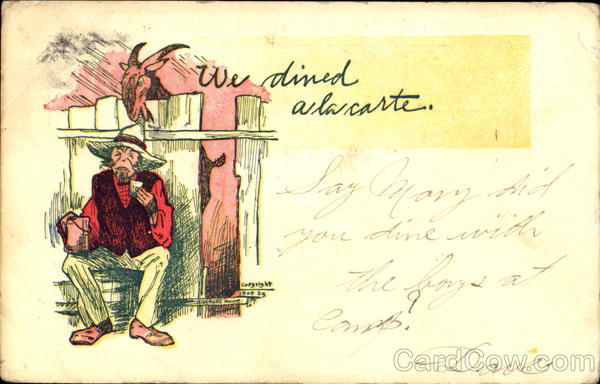 We dined
a la carte.
Say Mary did
you dine with
the boys at
camp?
Copyright
1905 by
CardCow.com